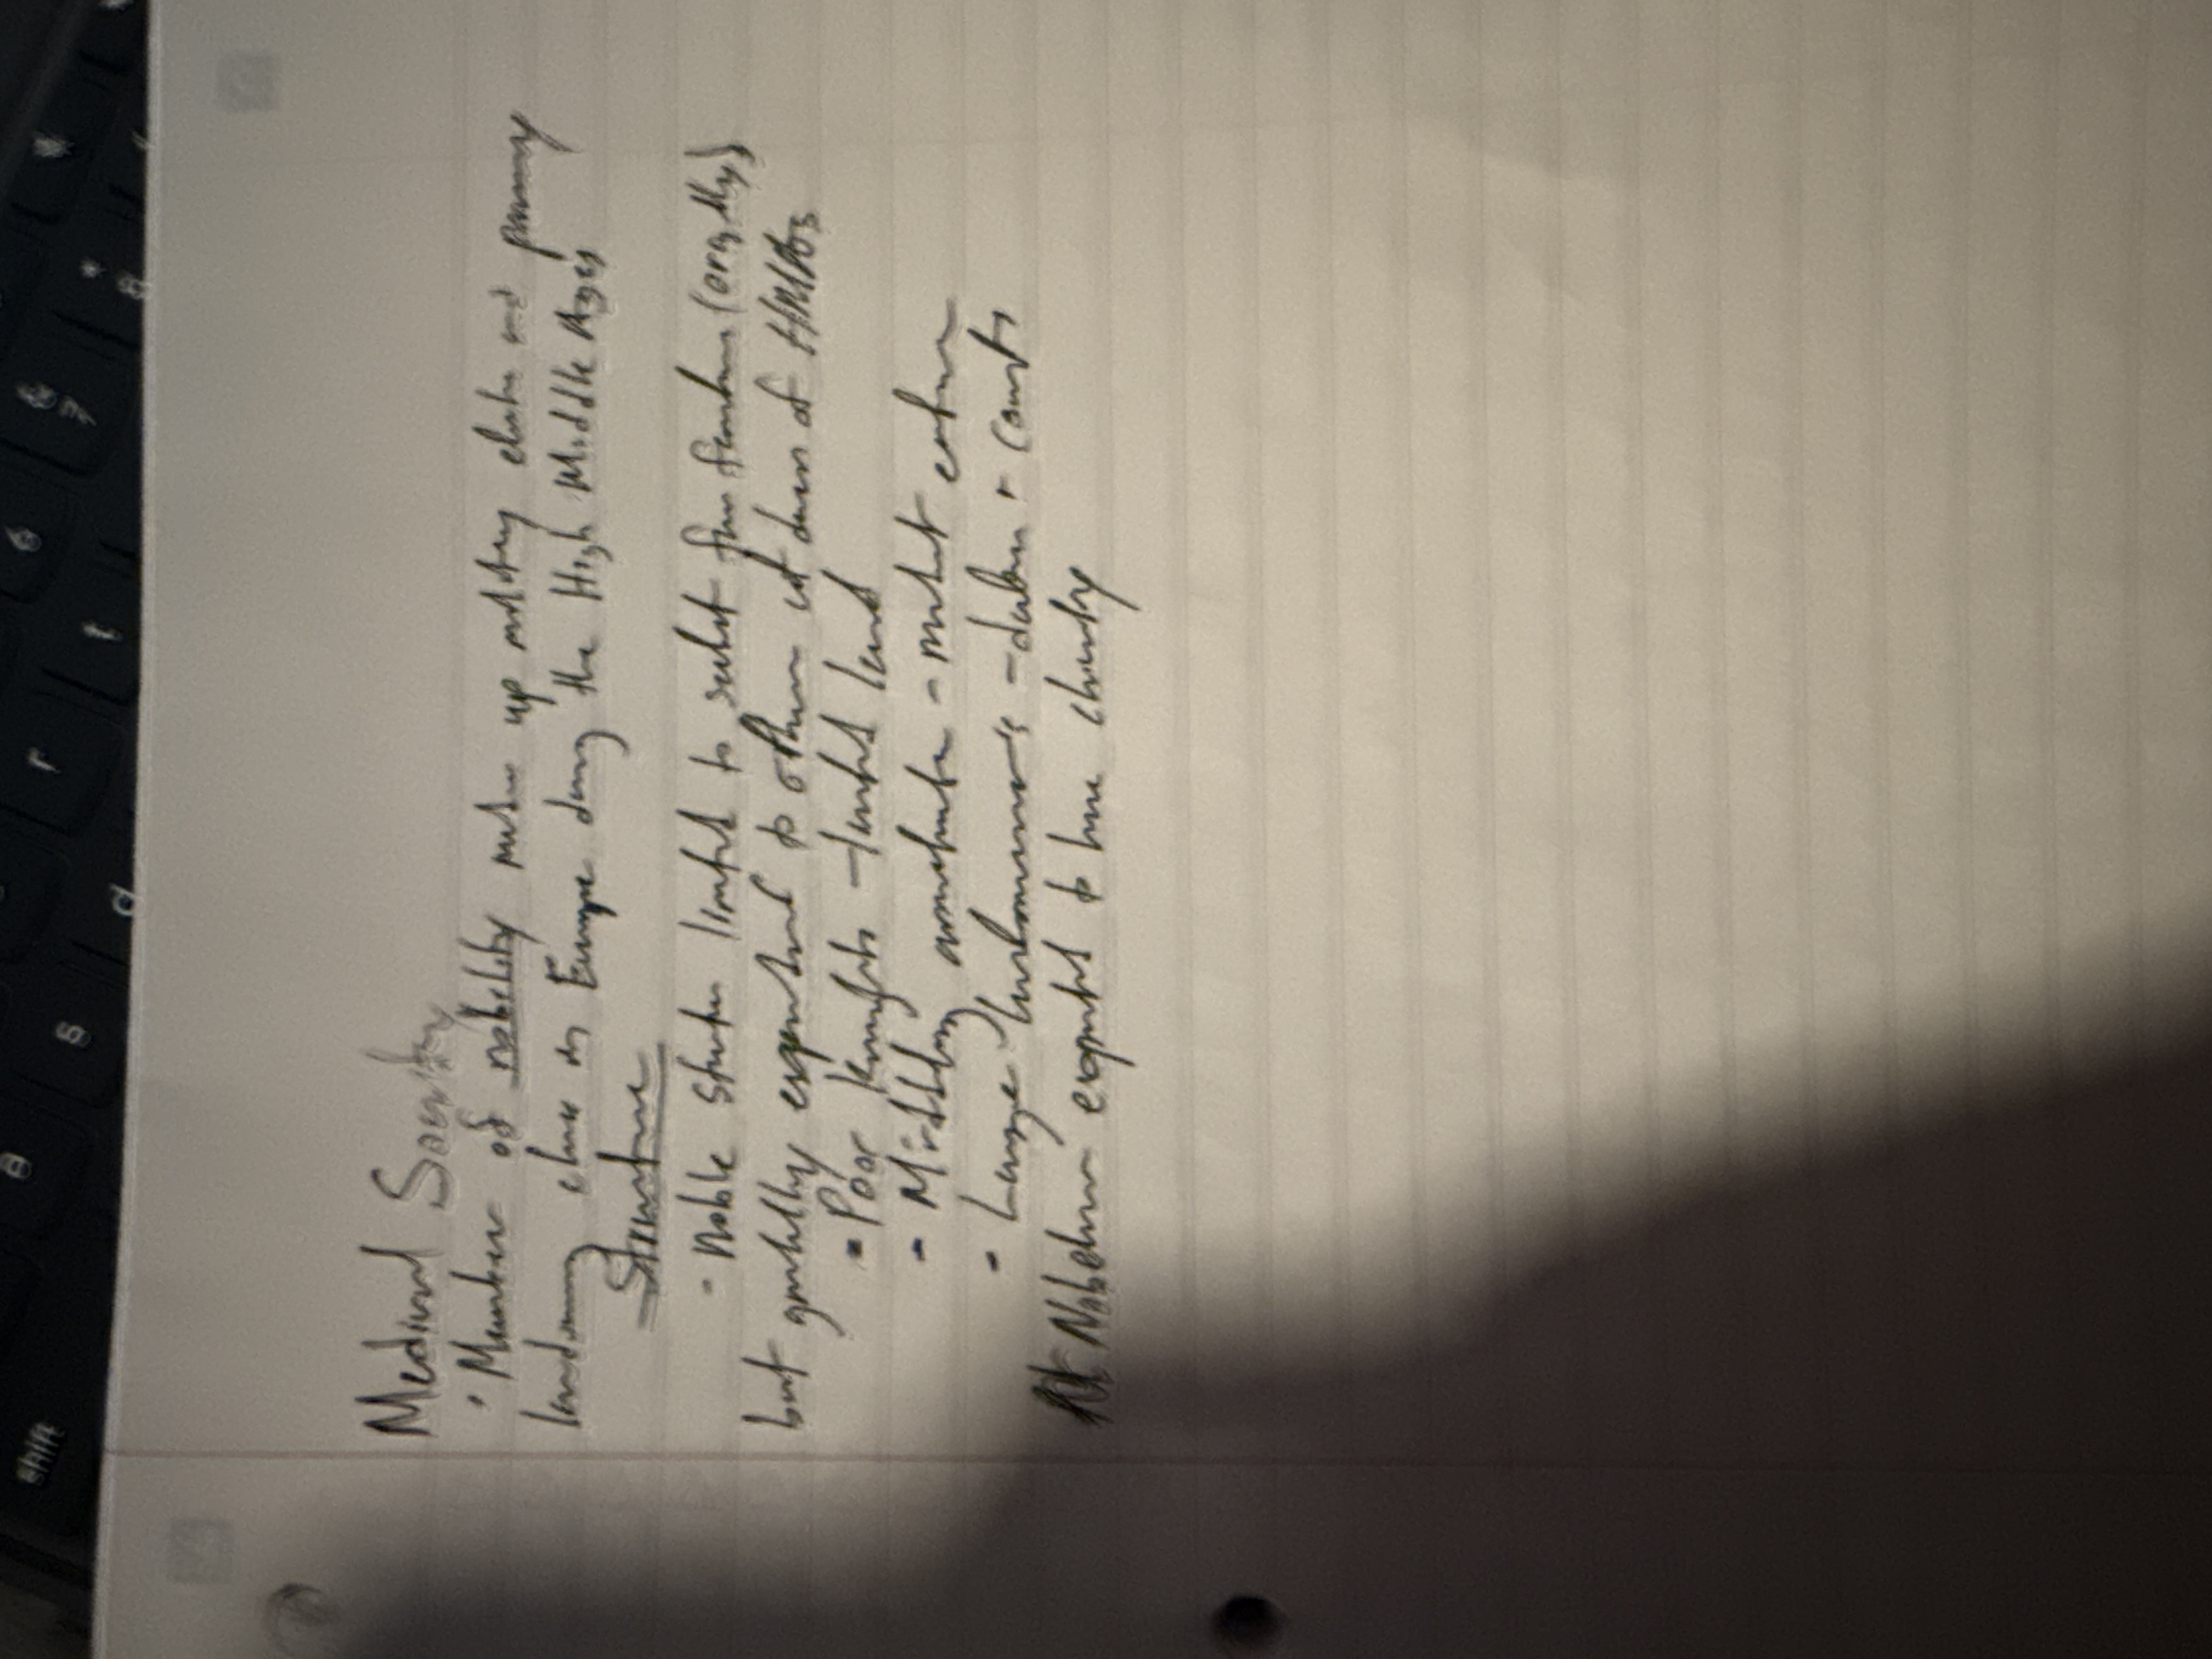 Medieval Society
• Members of nobility make up military elites and primary
landowning class in Europe during the High Middle Ages
Structure
- Noble status limited to select few families (orig.lly)
but gradually expanded to others w/ dawn of HMAs
- Poor knights - limited land
- Middling - moderate
- Large landowners - dukes + counts
Noblemen expected to have chivalry
shift
a
s
d
r
t
6
7
8